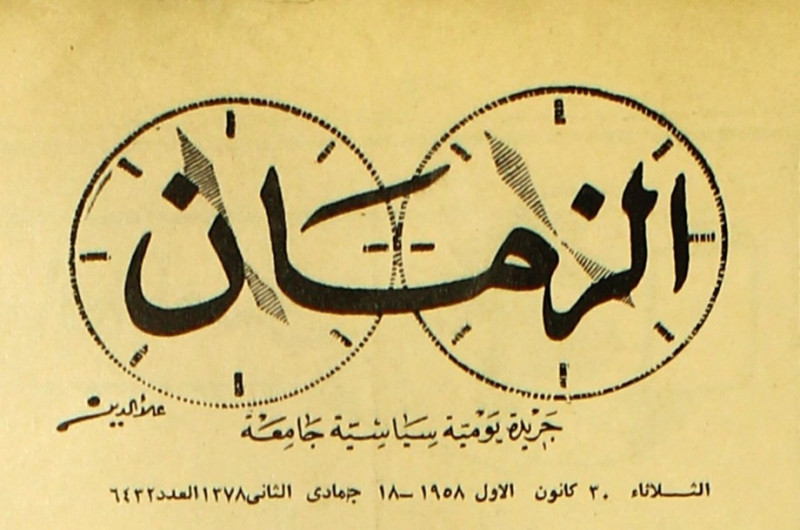 الزمان
علاء الدين
جريدة يومية سياسية جامعة
الثلاثاء ٣٠ كانون الاول ١٩٥٨ – ١٨ جمادى الثاني ١٣٧٨ العدد ٦٤٣٢